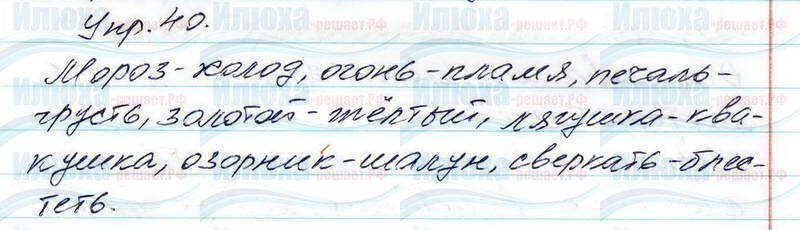 Упр. 40.
Мороз - холод, огонь - пламя, печаль -
грусть, золотой - жёлтый, лягушка - ква-
кушка, озорник - шалун, сверкать - блес-
теть.